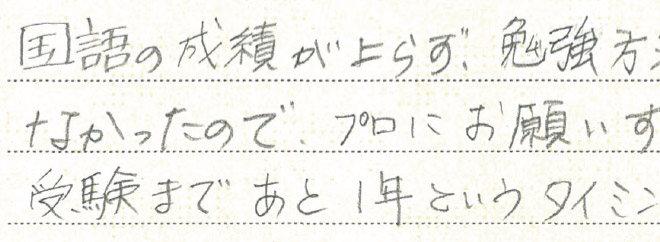 国語の成績が上らず、勉強方
なかったので、プロにお願いす
受験まであと1年というタイミン